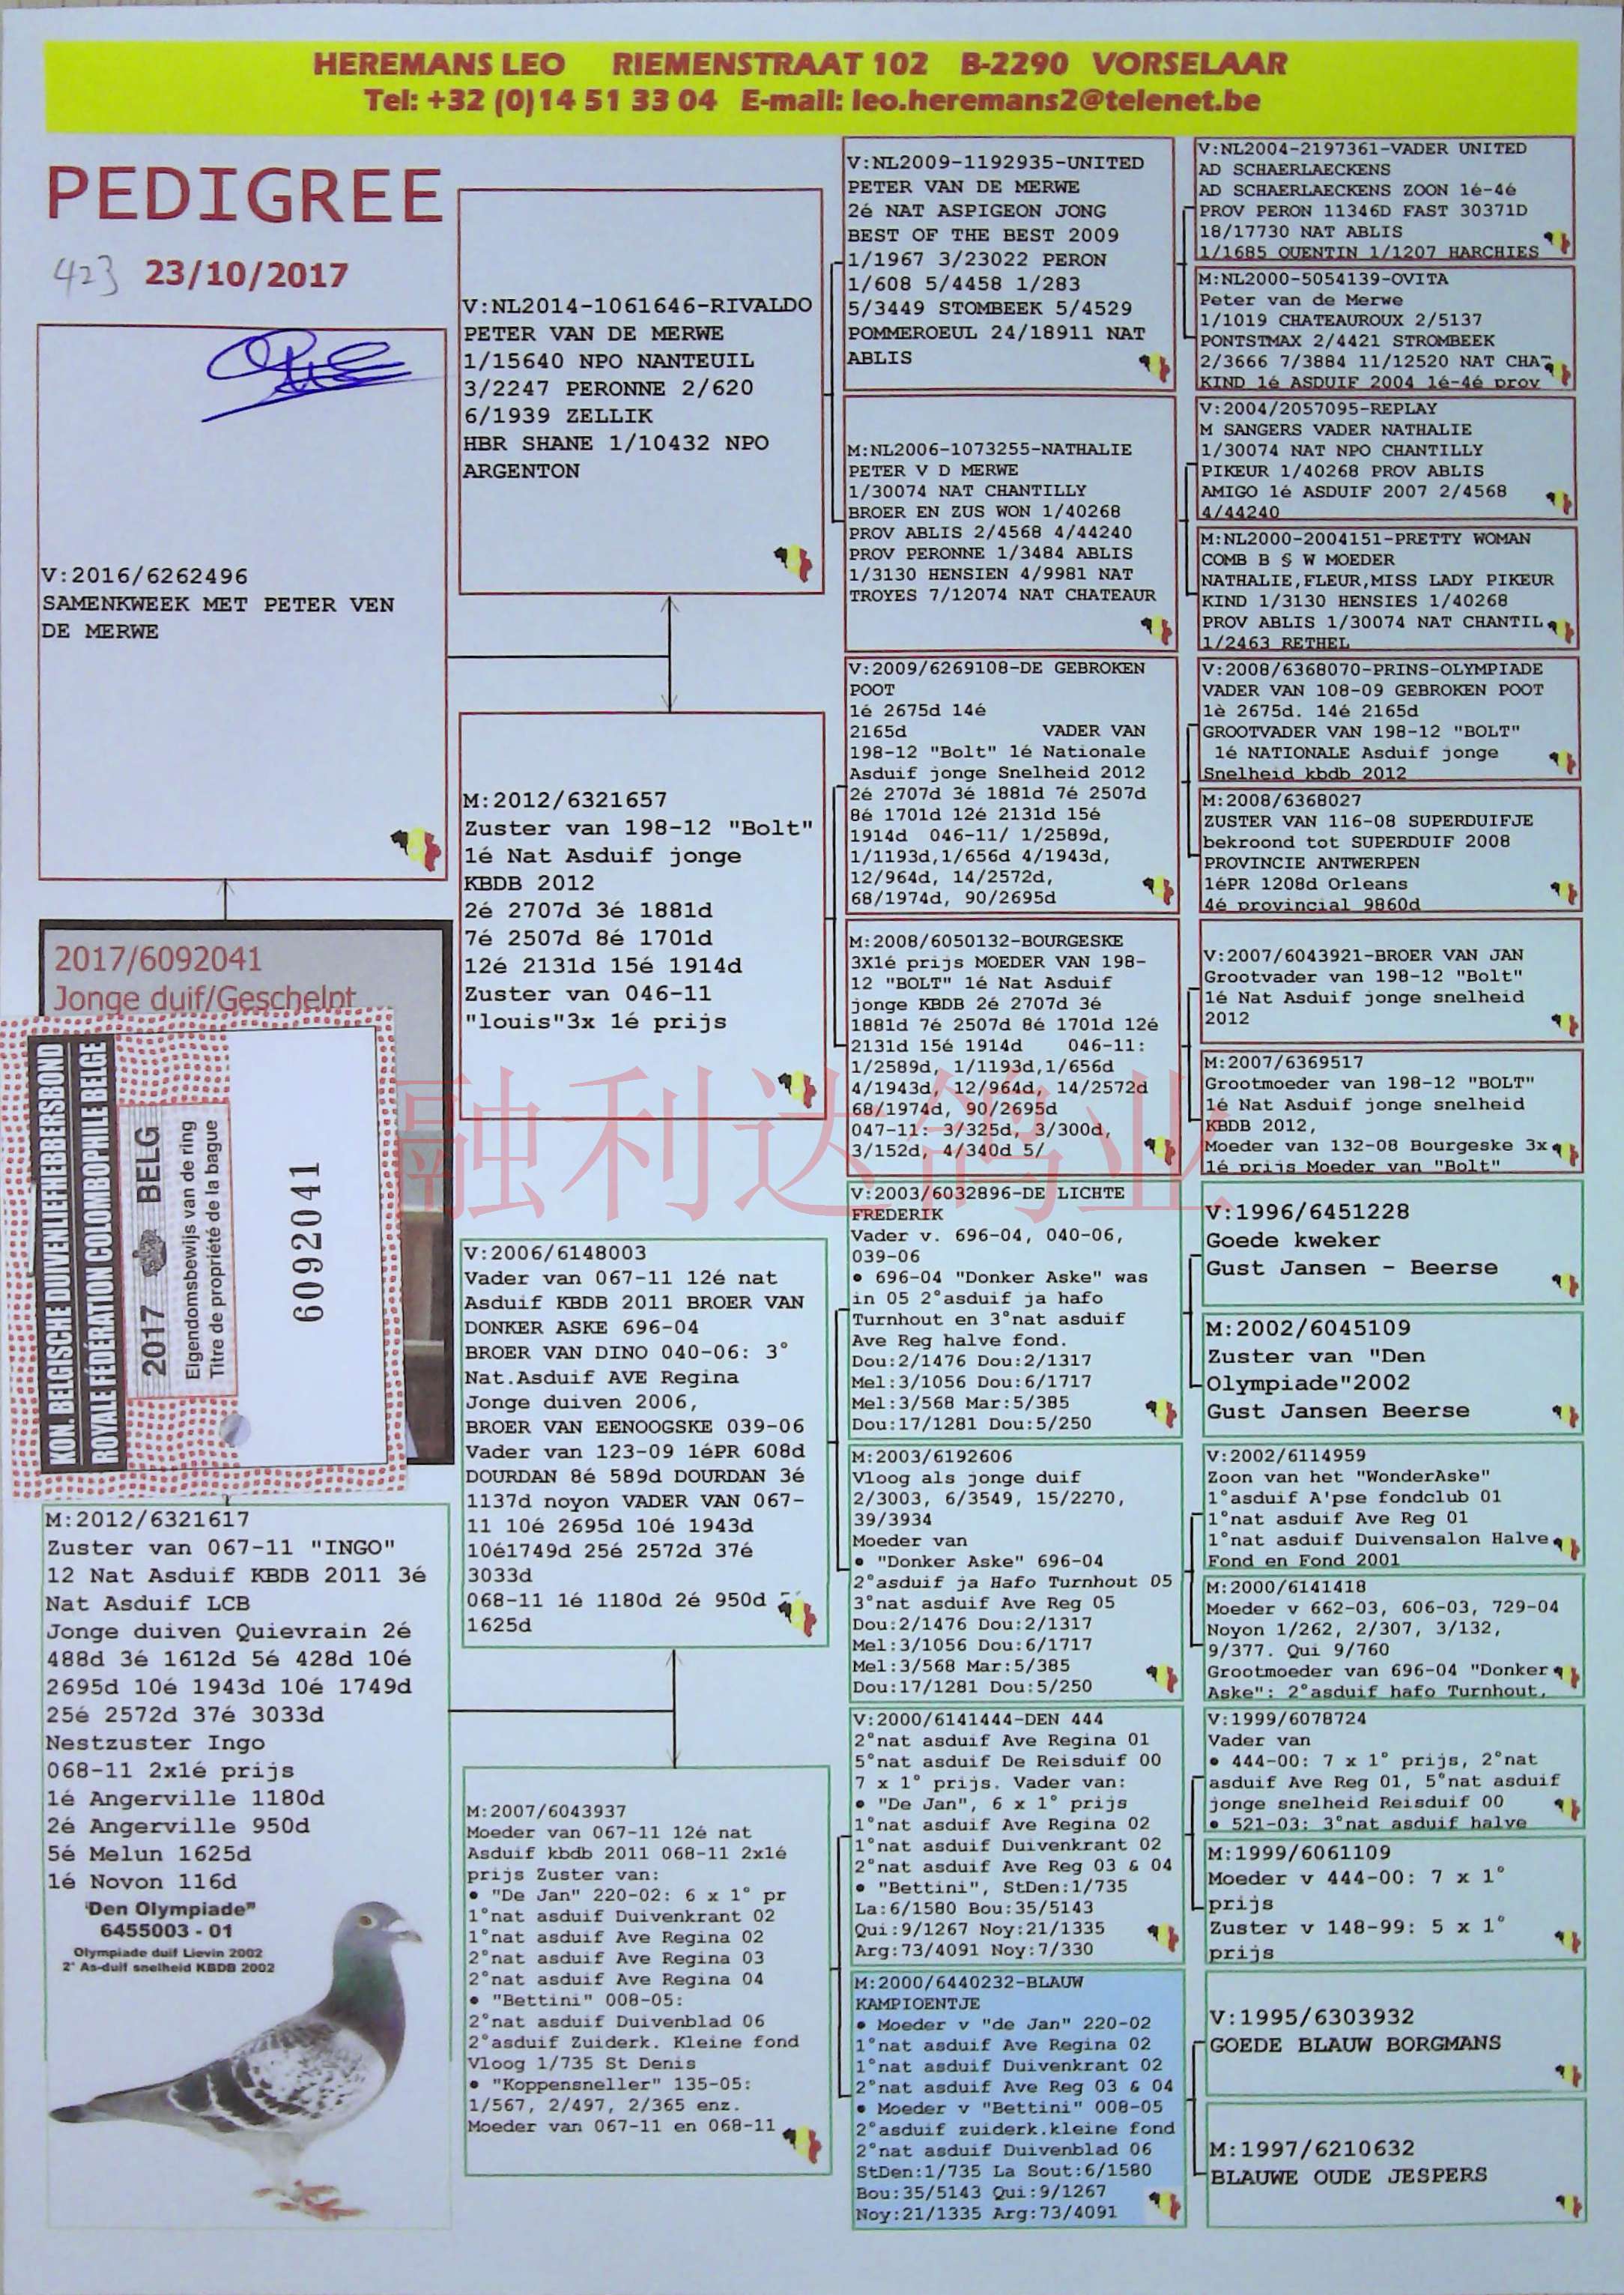 HEREMANS LEO RIEMENSTRAAT 102 B-2290 VORSELAAR
Tel: +32 (0)14 51 33 04 E-mail: leo.heremans2@telenet.be
PEDIGREE
423 23/10/2017
V:2016/6262496
SAMENKWEEK MET PETER VEN
DE MERWE
2017/6092041
Jonge duif/Geschelpt
KON. BELGISCHE DUIVENLIEFHEBBERSBOND
ROYALE FÉDÉRATION COLOMBOPHILE BELGE
2017 BELG
Eigendomsbewijs van de ring
Titre de propriété de la bague
6092041
M:2012/6321617
Zuster van 067-11 "INGO"
12 Nat Asduif KBDB 2011 3é
Nat Asduif LCB
Jonge duiven Quievrain 2é
488d 3é 1612d 5é 428d 10é
2695d 10é 1943d 10é 1749d
25é 2572d 37é 3033d
Nestzuster Ingo
068-11 2x1é prijs
1é Angerville 1180d
2é Angerville 950d
5é Melun 1625d
1é Novon 116d
"Den Olympiade"
6455003 - 01
Olympiade duif Lievin 2002
2° As-duif snelheid KBDB 2002
V:NL2014-1061646-RIVALDO
PETER VAN DE MERWE
1/15640 NPO NANTEUIL
3/2247 PERONNE 2/620
6/1939 ZELLIK
HBR SHANE 1/10432 NPO
ARGENTON
M:2012/6321657
Zuster van 198-12 "Bolt"
1é Nat Asduif jonge
KBDB 2012
2é 2707d 3é 1881d
7é 2507d 8é 1701d
12é 2131d 15é 1914d
Zuster van 046-11
"louis"3x 1é prijs
V:2006/6148003
Vader van 067-11 12é nat
Asduif KBDB 2011 BROER VAN
DONKER ASKE 696-04
BROER VAN DINO 040-06: 3°
Nat.Asduif AVE Regina
Jonge duiven 2006,
BROER VAN EENOOGSKE 039-06
Vader van 123-09 1éPR 608d
DOURDAN 8é 589d DOURDAN 3é
1137d noyon VADER VAN 067-
11 10é 2695d 10é 1943d
10é1749d 25é 2572d 37é
3033d
068-11 1é 1180d 2é 950d
1625d
M:2007/6043937
Moeder van 067-11 12é nat
Asduif kbdb 2011 068-11 2x1é
prijs Zuster van:
• "De Jan" 220-02: 6 x 1° pr
1°nat asduif Duivenkrant 02
1°nat asduif Ave Regina 02
2°nat asduif Ave Regina 03
2°nat asduif Ave Regina 04
• "Bettini" 008-05:
2°nat asduif Duivenblad 06
2°asduif Zuiderk. Kleine fond
Vloog 1/735 St Denis
• "Koppensneller" 135-05:
1/567, 2/497, 2/365 enz.
Moeder van 067-11 en 068-11
V:NL2009-1192935-UNITED
PETER VAN DE MERWE
2é NAT ASPIGEON JONG
BEST OF THE BEST 2009
1/1967 3/23022 PERON
1/608 5/4458 1/283
5/3449 STOMBEEK 5/4529
POMMEROEUL 24/18911 NAT
ABLIS
M:NL2006-1073255-NATHALIE
PETER V D MERWE
1/30074 NAT CHANTILLY
BROER EN ZUS WON 1/40268
PROV ABLIS 2/4568 4/44240
PROV PERONNE 1/3484 ABLIS
1/3130 HENSIEN 4/9981 NAT
TROYES 7/12074 NAT CHATEAUR
V:2009/6269108-DE GEBROKEN
POOT
1é 2675d 14é
2165d VADER VAN
198-12 "Bolt" 1é Nationale
Asduif jonge Snelheid 2012
2é 2707d 3é 1881d 7é 2507d
8é 1701d 12é 2131d 15é
1914d 046-11/ 1/2589d,
1/1193d,1/656d 4/1943d,
12/964d, 14/2572d,
68/1974d, 90/2695d
M:2008/6050132-BOURGESKE
3X1é prijs MOEDER VAN 198-
12 "BOLT" 1é Nat Asduif
jonge KBDB 2é 2707d 3é
1881d 7é 2507d 8é 1701d 12é
2131d 15é 1914d 046-11:
1/2589d, 1/1193d,1/656d
4/1943d, 12/964d, 14/2572d
68/1974d, 90/2695d
047-11: 3/325d, 3/300d,
3/152d, 4/340d 5/
V:2003/6032896-DE LICHTE
FREDERIK
Vader v. 696-04, 040-06,
039-06
• 696-04 "Donker Aske" was
in 05 2°asduif ja hafo
Turnhout en 3°nat asduif
Ave Reg halve fond.
Dou:2/1476 Dou:2/1317
Mel:3/1056 Dou:6/1717
Mel:3/568 Mar:5/385
Dou:17/1281 Dou:5/250
M:2003/6192606
Vloog als jonge duif
2/3003, 6/3549, 15/2270,
39/3934
Moeder van
• "Donker Aske" 696-04
2°asduif ja Hafo Turnhout 05
3°nat asduif Ave Reg 05
Dou:2/1476 Dou:2/1317
Mel:3/1056 Dou:6/1717
Mel:3/568 Mar:5/385
Dou:17/1281 Dou:5/250
V:2000/6141444-DEN 444
2°nat asduif Ave Regina 01
5°nat asduif De Reisduif 00
7 x 1° prijs. Vader van:
• "De Jan", 6 x 1° prijs
1°nat asduif Ave Regina 02
1°nat asduif Duivenkrant 02
2°nat asduif Ave Reg 03 & 04
• "Bettini", StDen:1/735
La:6/1580 Bou:35/5143
Qui:9/1267 Noy:21/1335
Arg:73/4091 Noy:7/330
M:2000/6440232-BLAUW
KAMPIOENTJE
• Moeder v "de Jan" 220-02
1°nat asduif Ave Regina 02
1°nat asduif Duivenkrant 02
2°nat asduif Ave Reg 03 & 04
• Moeder v "Bettini" 008-05
2°asduif zuiderk.kleine fond
2°nat asduif Duivenblad 06
StDen:1/735 La Sout:6/1580
Bou:35/5143 Qui:9/1267
Noy:21/1335 Arg:73/4091
V:NL2004-2197361-VADER UNITED
AD SCHAERLAECKENS
AD SCHAERLAECKENS ZOON 1é-4é
PROV PERON 11346D FAST 30371D
18/17730 NAT ABLIS
1/1685 QUENTIN 1/1207 HARCHIES
M:NL2000-5054139-OVITA
Peter van de Merwe
1/1019 CHATEAUROUX 2/5137
PONTSTMAX 2/4421 STROMBEEK
2/3666 7/3884 11/12520 NAT CHA
KIND 1é ASDUIF 2004 1é-4é prov
V:2004/2057095-REPLAY
M SANGERS VADER NATHALIE
1/30074 NAT NPO CHANTILLY
PIKEUR 1/40268 PROV ABLIS
AMIGO 1é ASDUIF 2007 2/4568
4/44240
M:NL2000-2004151-PRETTY WOMAN
COMB B § W MOEDER
NATHALIE,FLEUR,MISS LADY PIKEUR
KIND 1/3130 HENSIES 1/40268
PROV ABLIS 1/30074 NAT CHANTIL
1/2463 RETHEL
V:2008/6368070-PRINS-OLYMPIADE
VADER VAN 108-09 GEBROKEN POOT
1è 2675d. 14é 2165d
GROOTVADER VAN 198-12 "BOLT"
1é NATIONALE Asduif jonge
Snelheid kbdb 2012
M:2008/6368027
ZUSTER VAN 116-08 SUPERDUIFJE
bekroond tot SUPERDUIF 2008
PROVINCIE ANTWERPEN
1éPR 1208d Orleans
4é provincial 9860d
V:2007/6043921-BROER VAN JAN
Grootvader van 198-12 "Bolt"
1é Nat Asduif jonge snelheid
2012
M:2007/6369517
Grootmoeder van 198-12 "BOLT"
1é Nat Asduif jonge snelheid
KBDB 2012,
Moeder van 132-08 Bourgeske 3x
1é prijs Moeder van "Bolt"
V:1996/6451228
Goede kweker
Gust Jansen - Beerse
M:2002/6045109
Zuster van "Den
Olympiade"2002
Gust Jansen Beerse
V:2002/6114959
Zoon van het "WonderAske"
1°asduif A'pse fondclub 01
1°nat asduif Ave Reg 01
1°nat asduif Duivensalon Halve
Fond en Fond 2001
M:2000/6141418
Moeder v 662-03, 606-03, 729-04
Noyon 1/262, 2/307, 3/132,
9/377. Qui 9/760
Grootmoeder van 696-04 "Donker
Aske": 2°asduif hafo Turnhout,
V:1999/6078724
Vader van
• 444-00: 7 x 1° prijs, 2°nat
asduif Ave Reg 01, 5°nat asduif
jonge snelheid Reisduif 00
• 521-03: 3°nat asduif halve
M:1999/6061109
Moeder v 444-00: 7 x 1°
prijs
Zuster v 148-99: 5 x 1°
prijs
V:1995/6303932
GOEDE BLAUW BORGMANS
M:1997/6210632
BLAUWE OUDE JESPERS
融利达鸽业